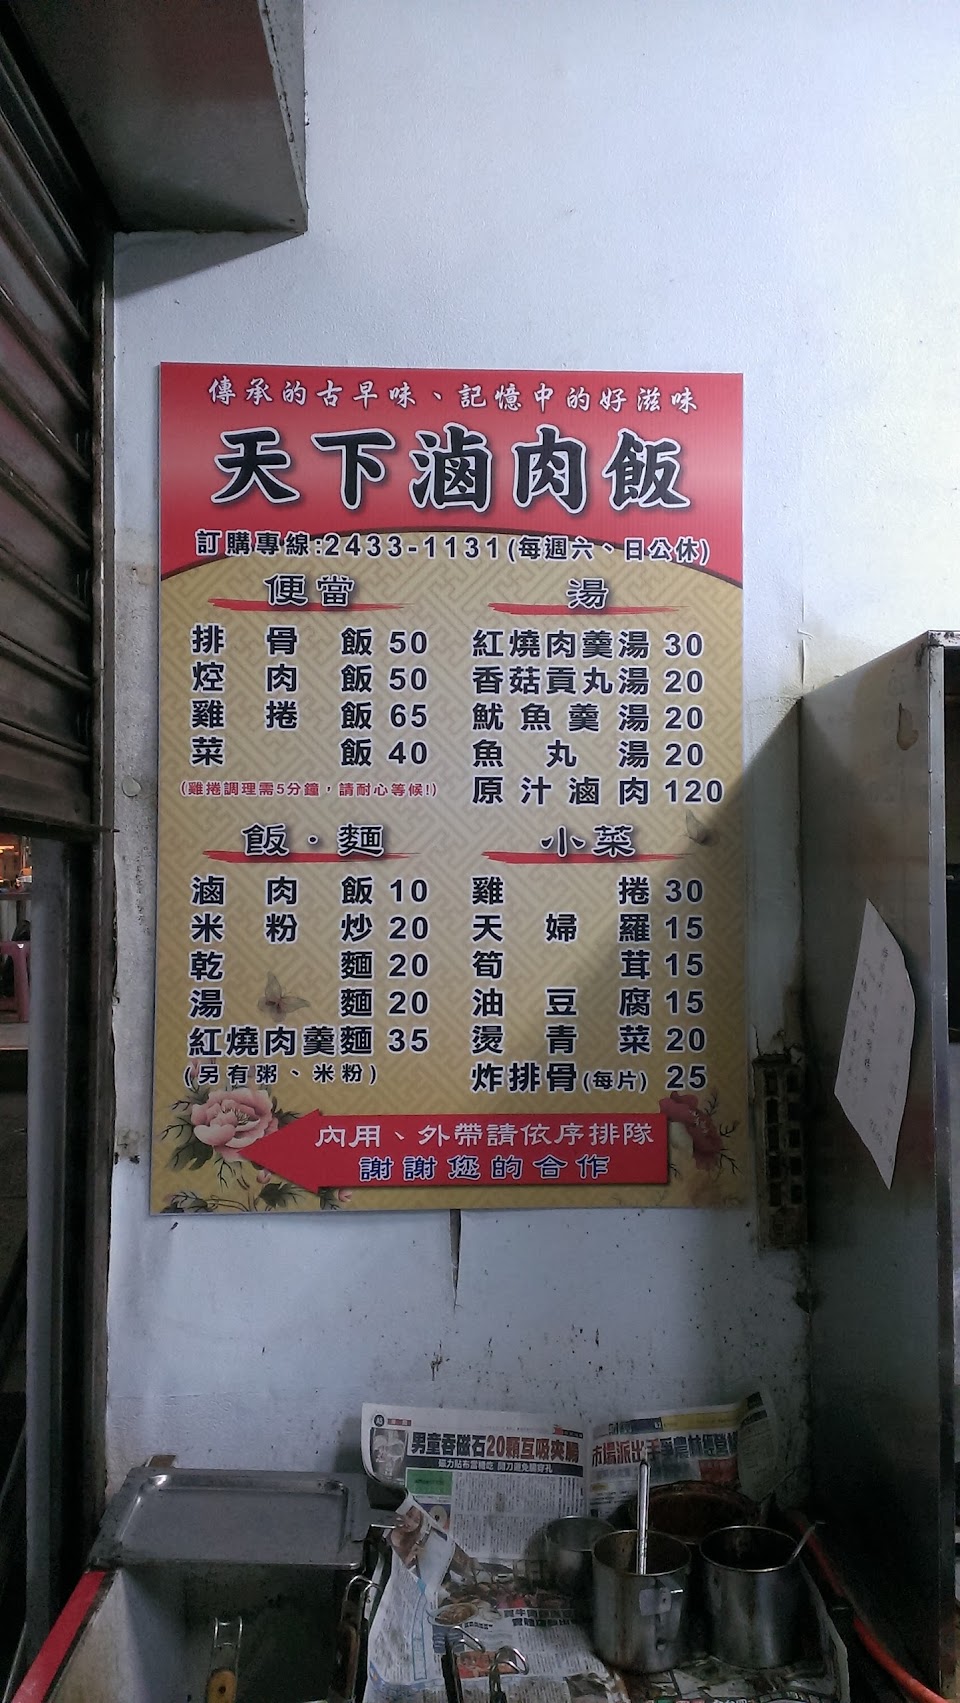 傳承的古早味、記憶中的好滋味
天下滷肉飯
訂購專線:2433-1131(每週六、日公休)
便當
排骨飯 50
焢肉飯 50
雞捲飯 65
菜飯 40
(雞捲調理需5分鐘，請耐心等候!)
湯
紅燒肉羹湯 30
香菇貢丸湯 20
魷魚羹湯 20
魚丸湯 20
原汁滷肉 120
飯·麵
滷肉飯 10
米粉炒 20
乾麵 20
湯麵 20
紅燒肉羹麵 35
(另有粥、米粉)
小菜
雞捲 30
天婦羅 15
筍茸 15
油豆腐 15
燙青菜 20
炸排骨(每片) 25
內用、外帶請依序排隊
謝謝您的合作
男童吞磁石20顆互吸夾腸
磁力貼布當糖吃 開刀避免腸穿孔
市場派出手爭農林經營權